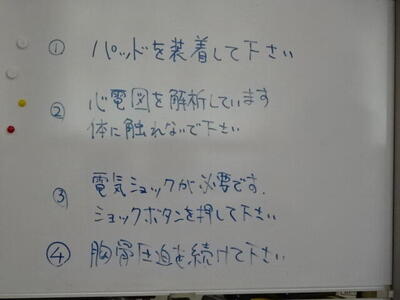 ① パッドを装着して下さい
② 心電図を解析しています
体に触れないで下さい
③ 電気ショックが必要です.
ショックボタンを押して下さい
④ 胸骨圧迫を続けて下さい